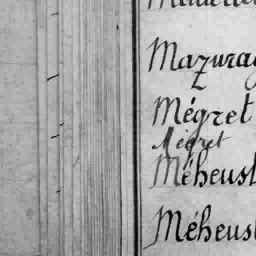 Mazurag
Mégret
Mégret
Méheust
Méheus